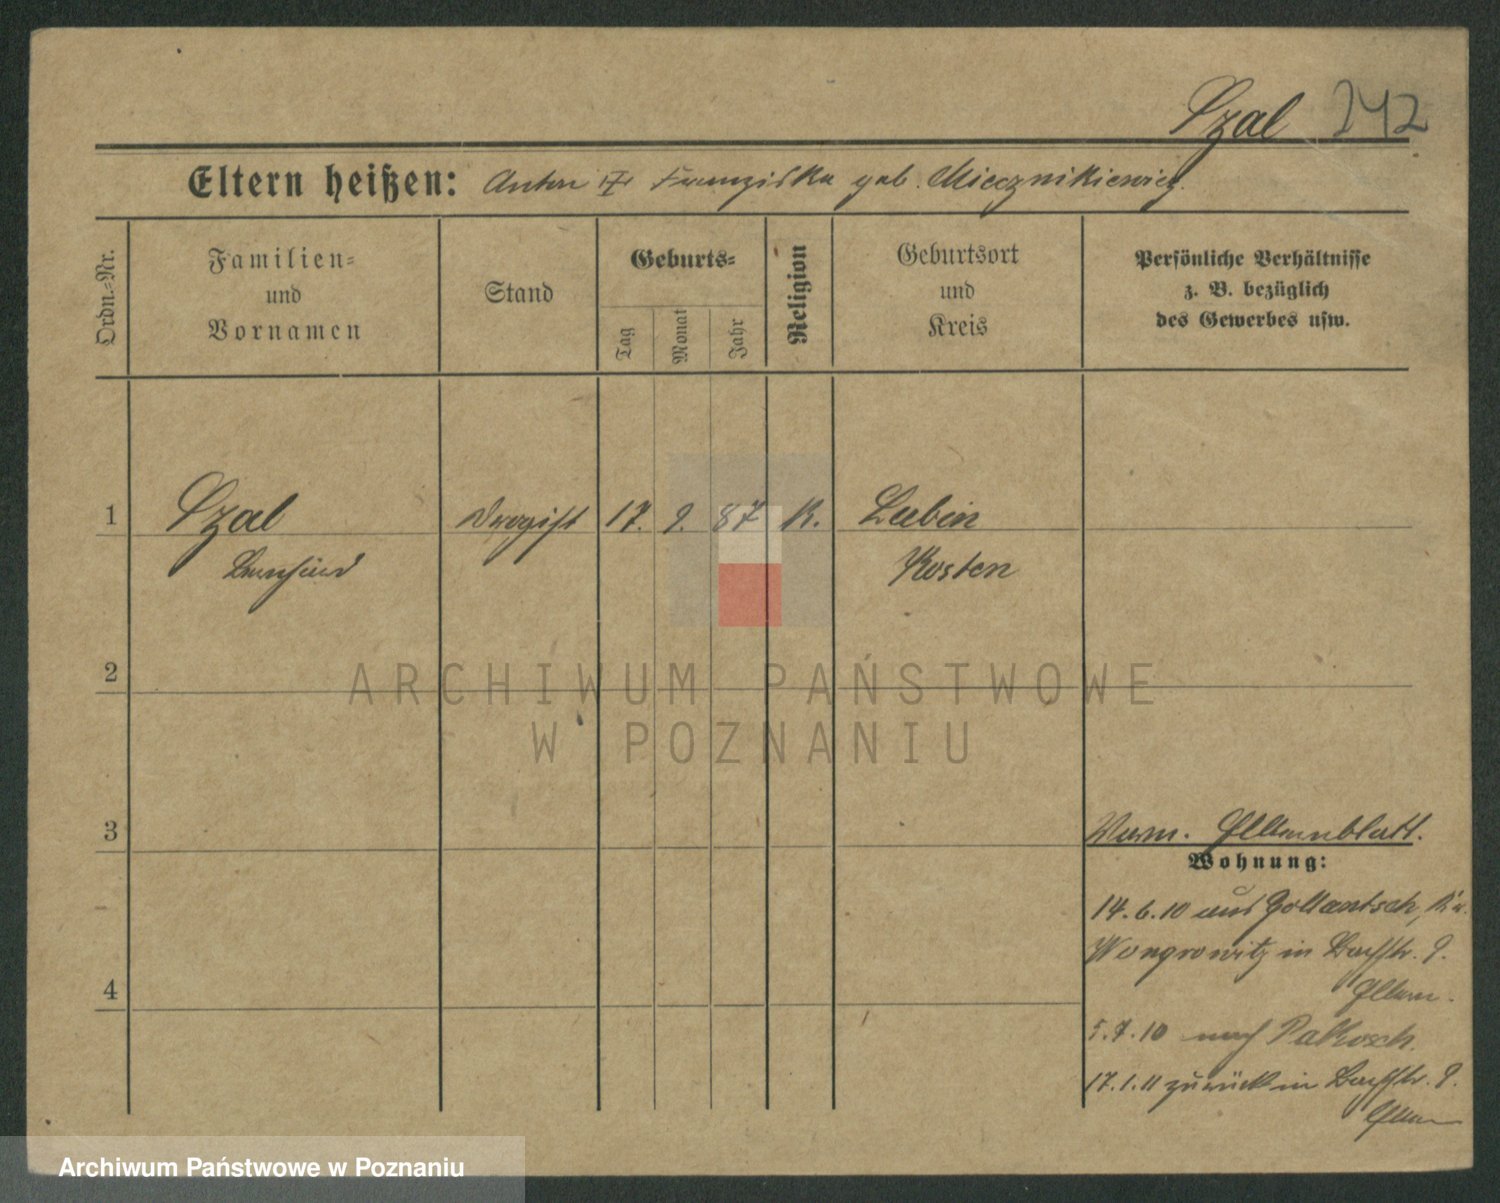 Szal 242
Eltern heißen: Anton Franziska geb. Miecznikiewicz.
Ordn.-Nr.
Familien-
und
Vornamen
Stand
Geburts-
Tag
Monat
Jahr
Religion
Geburtsort
und
Kreis
Persönliche Verhältnisse
z. B. bezüglich
des Gewerbes usw.
1 Szal Drogist 17. 9. 87 K. Lubin
Kosten
2
ARCHIWUM PAŃSTWOWE
W POZNANIU
3
Elternblatt.
Wohnung:
14.6.10 aus Gollantsch, Kr.
Wongrowitz in Bachstr. 9.
4
Eltern.
5.7.10 nach Pakosch.
17.1.11 zurück in Bachstr. 9.
Eltern
Archiwum Państwowe w Poznaniu